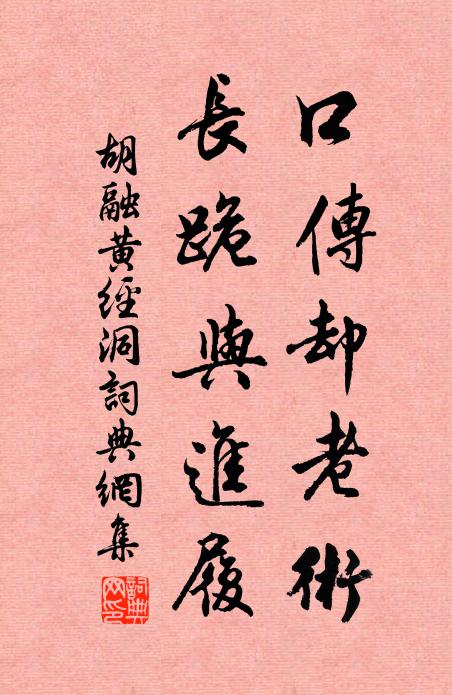 口傳却老術
長跪與進履
胡融黄經洞詞典網集
詞典網印